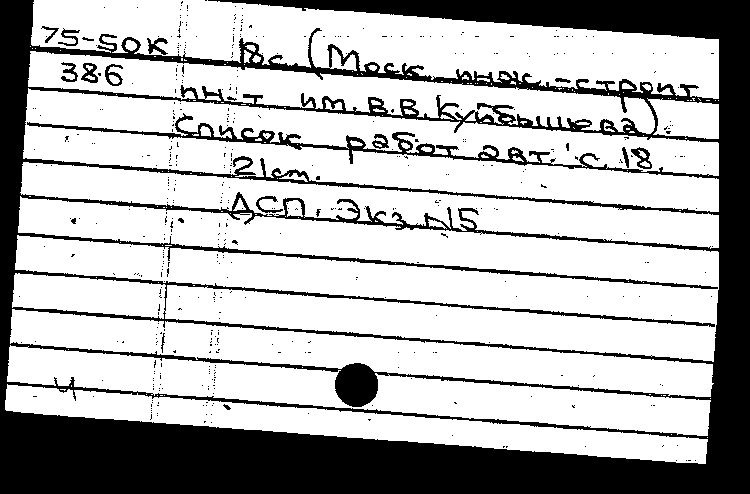 75-50к 18с. (Моск. инж.-строит
386 ин-т им. В.В. Куйбышева)
Список работ авт. с. 18.
21см.
ДСП. Экз. №15
4